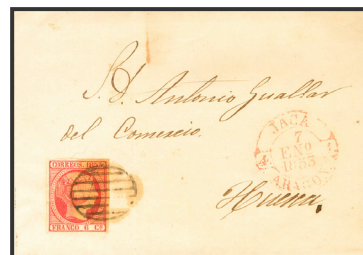 S.D. Antonio Guallar
del Comercio.
JACA
7
ENO
1853
ARAGON
CORREOS. 1853
FRANCO 6 Cs
Huesca.